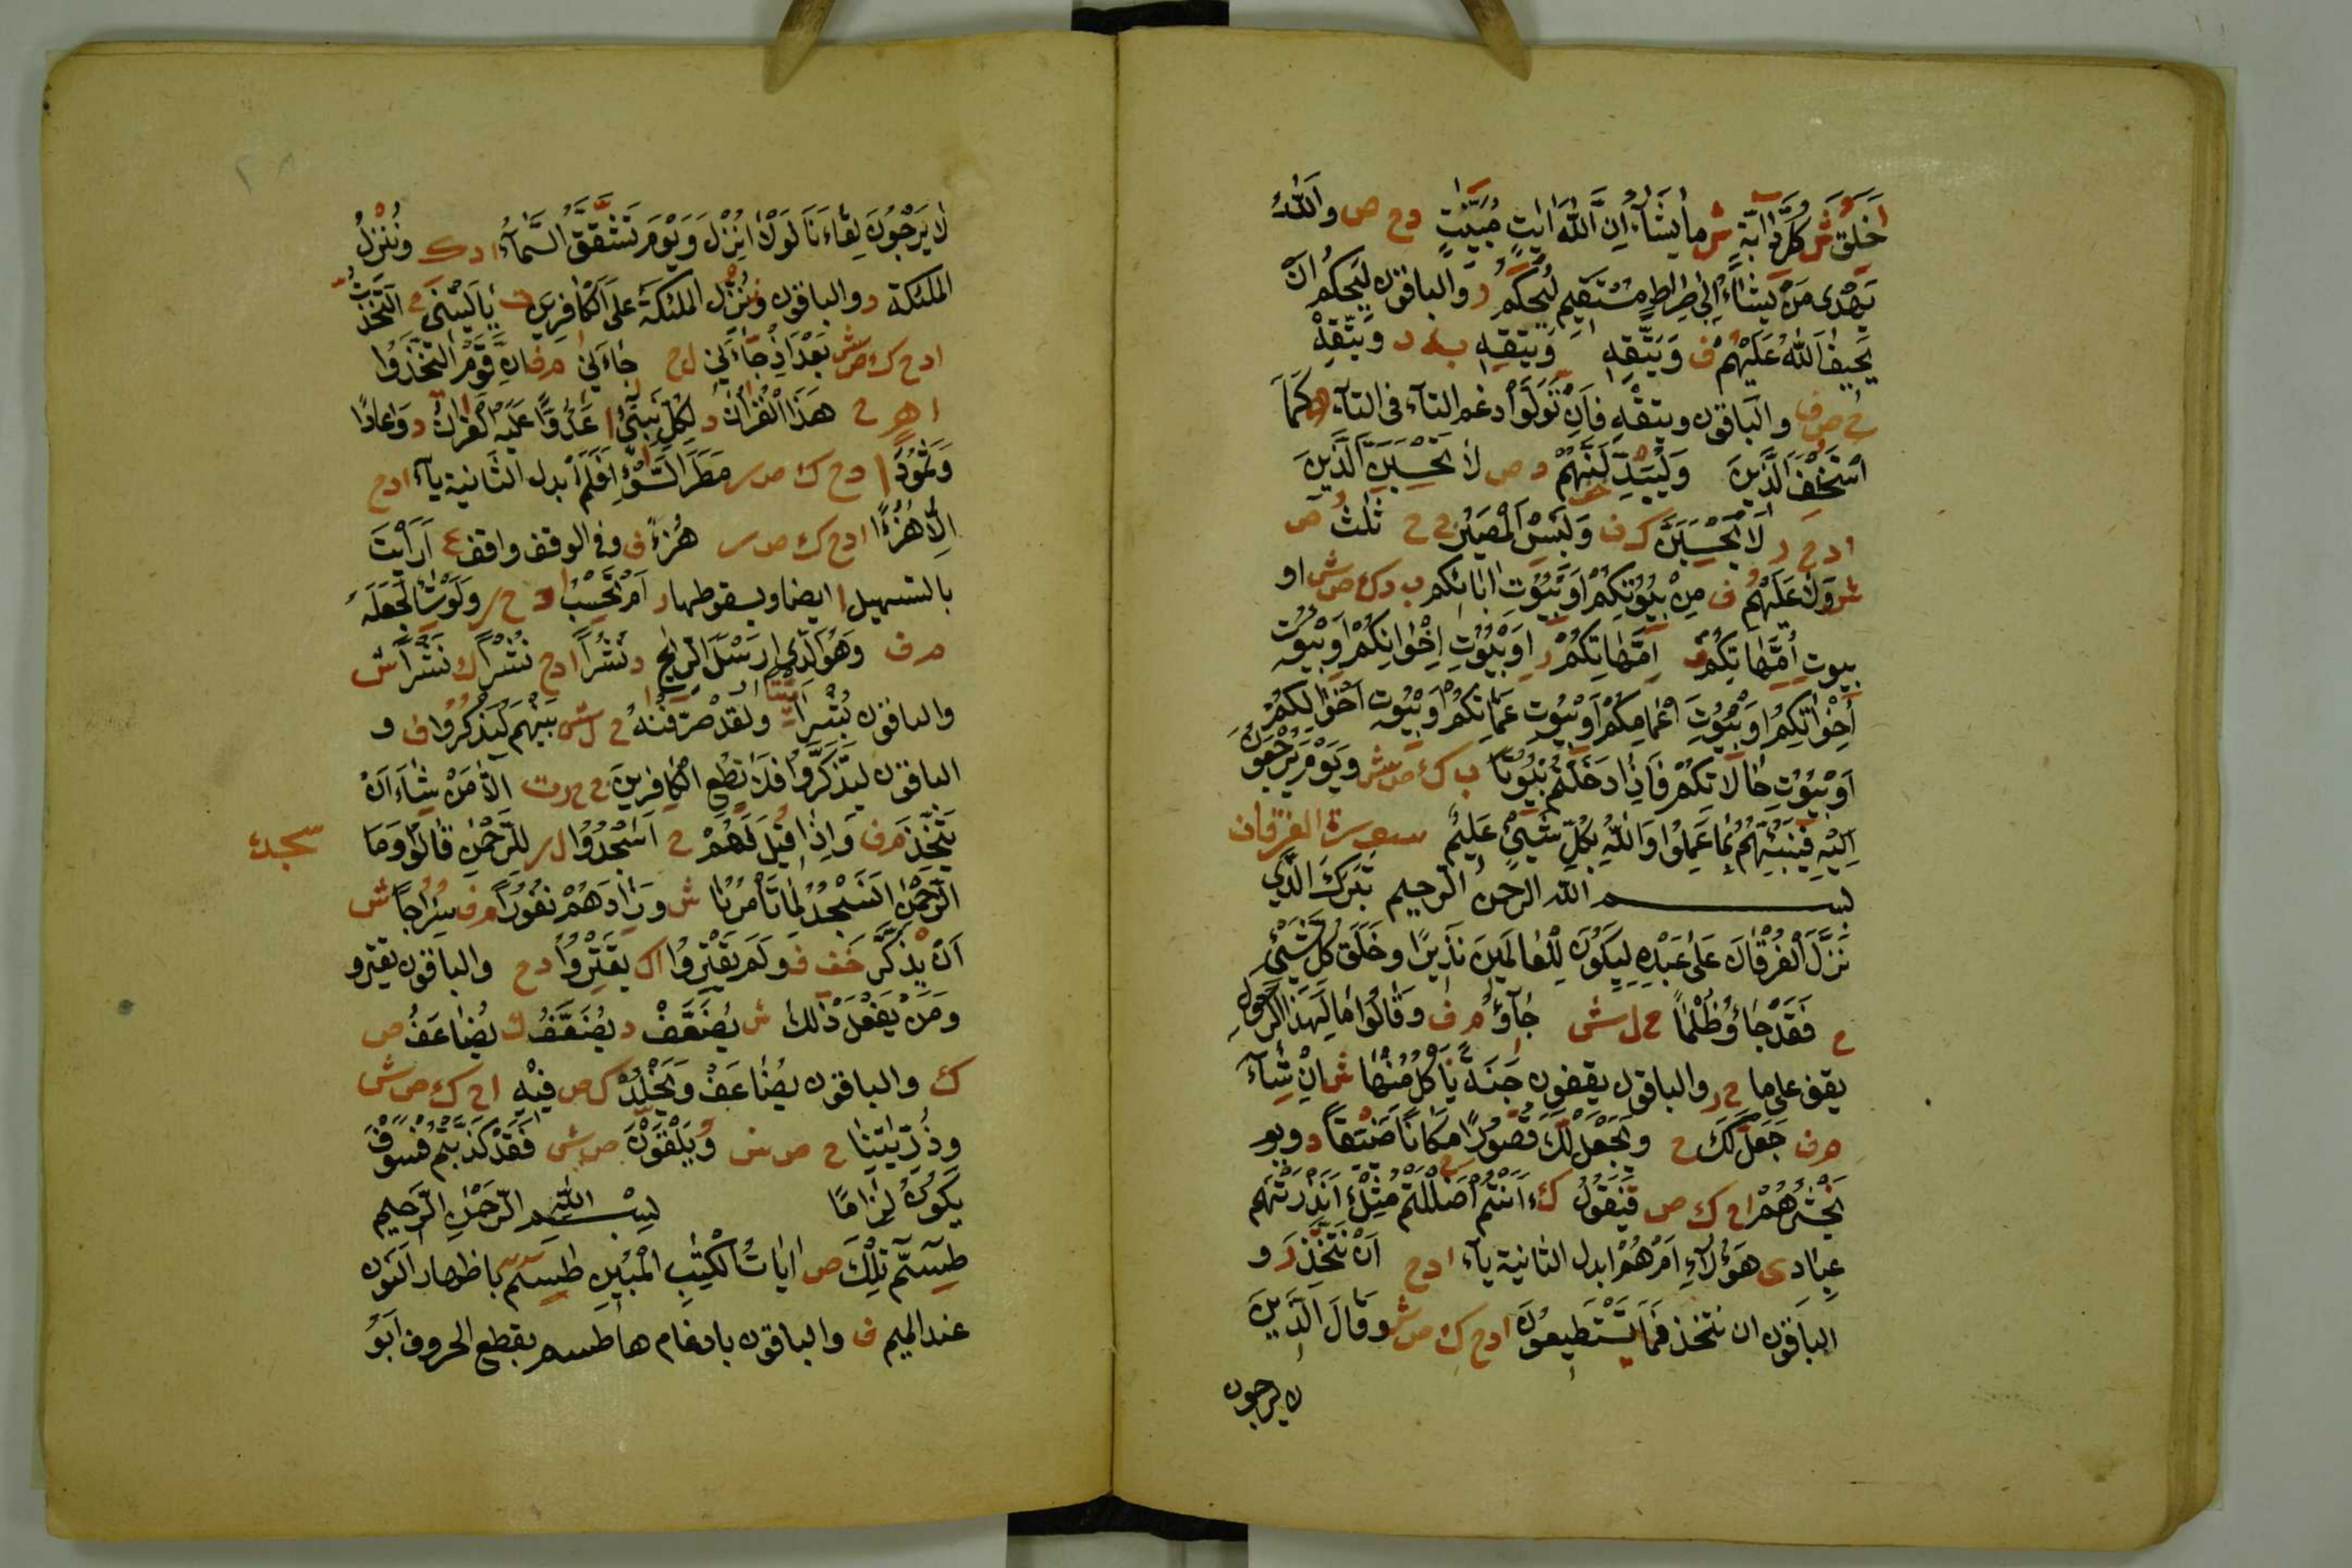 خَلَقَ ش كُلَّ دَآبَّةٍ ش ما يَشَآءُ اِنَّ اللّٰهَ اٰيٰتٍ مُبَيِّنٰتٍ دح ص واللّٰهُ
يَهْدِى مَنْ يَشَآءُ اِلٰى صِرَاطٍ مُسْتَقِيمٍ لِيَحْكُمَ ر والباقون لِيَحْكُمَ اَنْ
يَحِيفَ اللّٰهُ عَلَيْهِمْ ف وَيَتَّقِهِ وَيَتَّقِهِ د وَيَتَّقِهْ
ح ص ق والباقون ويتقهِ فَاِنْ تَوَلَّوْا ادغم التآء فى التآء كَمَا
اسْتَخْلَفَ الَّذِينَ وَلَيُبَدِّلَنَّهُمْ د ص لَا تَحْسَبَنَّ الَّذِينَ
ادح ر لَا يَحْسَبَنَّ ك ف وَلَبِئْسَ الْمَصِيرُ ح ح ثَلٰثُ ص
ش عَلَيْهِمْ ف مِنْ بِيُوتِكُمْ اَوْ بِيُوتِ اٰبَائِكُمْ ب دك ص ش او
بيوت اُمَّهَاتِكُمْ اِمَّهَاتِكُمْ ر اَوْ بِيُوتِ اِخْوَانِكُمْ اَوْ بُيُوتِ
اَخَوَاتِكُمْ اَوْ بُيُوتِ اَعْمَامِكُمْ اَوْ بُيُوتِ عَمَّاتِكُمْ اَوْ بُيُوتِ اَخْوَالِكُمْ
اَوْ بُيُوتِ خَالَاتِكُمْ فَاِذَا دَخَلْتُمْ بُيُوتًا ب ك ص ش وَيَوْمَ يَرْجِعُونَ
اِلَيْهِ فَيُنَبِّئُهُمْ بِمَا عَمِلُوا وَاللّٰهُ بِكُلِّ شَيْءٍ عَلِيمٌ سورة الفرقان
بسم الله الرحمن الرحيم تَبَرَكَ الَّذِى
نَزَّلَ الْفُرْقَانَ عَلٰى عَبْدِهِ لِيَكُونَ لِلْعَالَمِينَ نَذِيرًا وخَلَقَ كُلَّ شَيْءٍ
ح فَقَدْ جَاؤُ ظُلْمًا ح ل ش جَآؤُ م ف وَقَالُوا مَا لِهَذَا الرَّسُولِ
يقف على ما ح ر والباقون يقفون جَنَّةٌ نَأْكُلُ مِنْهَا ش اِنْ شَآءَ
م ف جَعَلَ لَكَ ح وَيَجْعَلْ لَكَ قُصُورًا مَكَانًا ضَيْقًا د ويوم
نَحْشُرُهُمْ اح ك ص فَنَقُولُ ك ءَاَنْتُمْ اَضْلَلْتُمْ مِثْلُ ءَاَنْذَرْتَهُمْ
عِبَادِى هَؤُلَآءِ اَمْ هُمْ ابدل الثانية يآء ادح اَنْ نُتَّخَذَ ر و
الباقون ان نتخذ فَمَا يَسْتَطِيعُونَ ادح ك ص ش وَقَالَ الَّذِينَ
لا يرجون
لَا يَرْجُونَ لِقَاءَنَا لَوْلَا اُنْزِلَ وَيَوْمَ تَشَقَّقُ السَّمَآءُ ادك وَنُنْزِلُ
الملئكة د والباقون وَنُزِّلَ الملئكةُ عَلَى الْكَافِرِينَ ت يَا لَيْتَنِي ح اتَّخَذْتُ
ادح ك ص ش بَعْدَ اِذْ جَّاءَنِي ل ح جَاءَنِي م ف اِنَّ قَوْمِيَ اتَّخَذُوا
ا ه ح هَذَا الْقُرَانَ د لِكُلِّ نَبِيءٍ ا عَدُوًّا عَلَيْهِ الْقُرَانُ د وَعَادًا
وَثَمُودًا ا دح ك ص ر مَطَرَ السَّوْءِ اَفَلَمْ ابدل الثانية يآء ادح
اِلَّا هُزُءًا ادح ك ص ر هُزْءً ف وفى الوقف واقف ع اَرَاَيْتَ
بالتسهيل ا ايضا ويسقوطها ر اَمْ تَحْسِبُ ا د ح ر وَلَوْ شَآءَ لَجَعَلَهُ
م ف وَهُوَ الَّذِى اَرْسَلَ الرِّيحَ د نُشُرًا ادح نُشْرًا ك نَشْرًا ش
والباقون بُشْرًا مَيْتًا ولَقَدْ صَرَّفْنَاهُ ح ل ش بَيْنَهُمْ لِيَذْكُرُوا ف و
الباقون لِيَذَّكَّرُوا فَلَا تُطِعِ الْكَافِرِينَ ح ر ت اِلَّا مَنْ شَاءَ اَنْ
يَتَّخِذَ م ف وَاِذَا قِيلَ لَهُمْ ح اسْجُدُوا ل ر لِلرَّحْمٰنِ قَالُوا وَمَا
سجدة
الرَّحْمٰنُ اَنَسْجُدُ لِمَا تَأْمُرُنَا ش وزَادَهُمْ نُفُورًا م ف سُرُجًا ش
اَنْ يَذْكُرَ خف ف وَلَمْ يُقْتِرُوا ا ك يَقْتِرُوا دح والباقون يقترو
وَمَنْ يَفْعَلْ ذٰلِكَ ش يُضَعَّفْ د يُضَعَّفُ ك يُضَاعَفُ ص
ك والباقون يُضَاعَفْ وَيَخْلُدْ ك ص فِيْهِ اح ك ص ش
وذُرِّيَّتِنَا ح ص ش وَيَلْقَوْنَ ص ش فَقَدْ كَذَّبْتُمْ فَسَوْفَ
يَكُونُ لِزَامًا بِسْمِ اللهِ الرَّحْمٰنِ الرَّحِيمِ
طٓسٓمٓ تِلْكَ ص اٰيَاتُ الْكِتٰبِ الْمُبِيْنِ طٓسٓمٓ باظهار النون
عند الميم ف والباقون بادغام ها طسم بقطع الحروف اَبُو